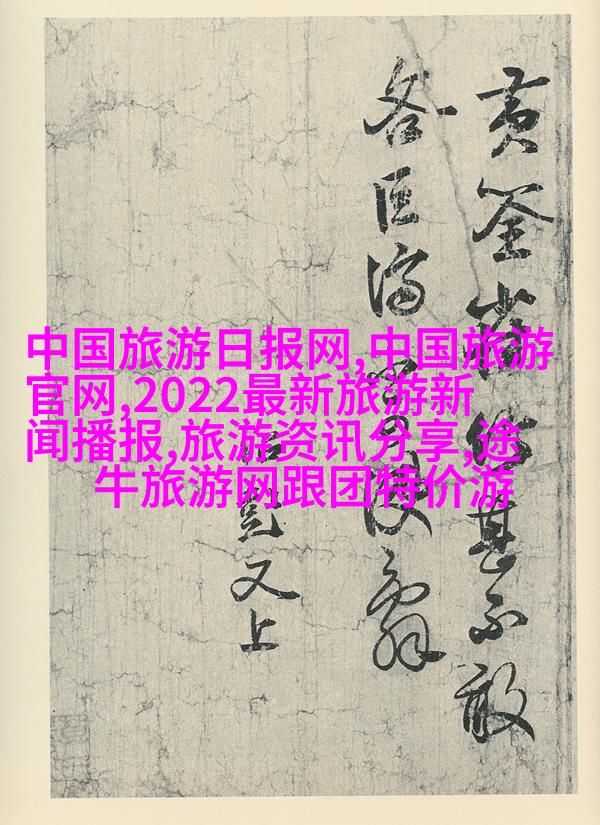 中国旅游日报网,中国旅游
官网,2022最新旅游新
闻播报,旅游资讯分享,途
牛旅游网跟团特价游
黄筌
甚不敢
巨濟
又上